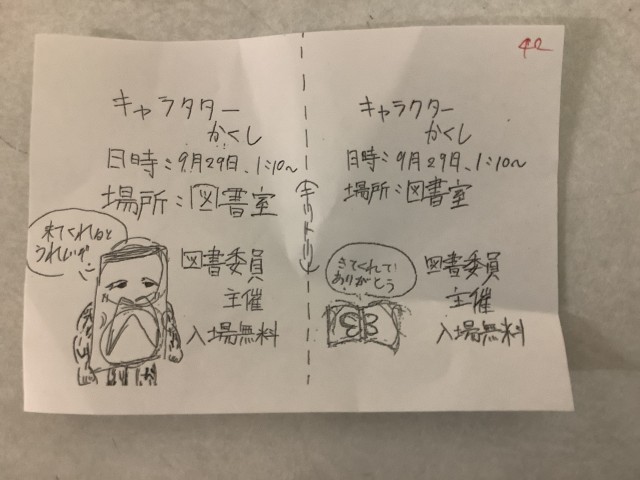 キャラクター
かくし
日時:9月29日、1:10~
場所:図書室
来てくれると
うれしいぜ
図書委員
主催
入場無料
キリトリ
キャラクター
かくし
日時:9月29日、1:10~
場所:図書室
きてくれて
ありがとう
図書委員
主催
入場無料